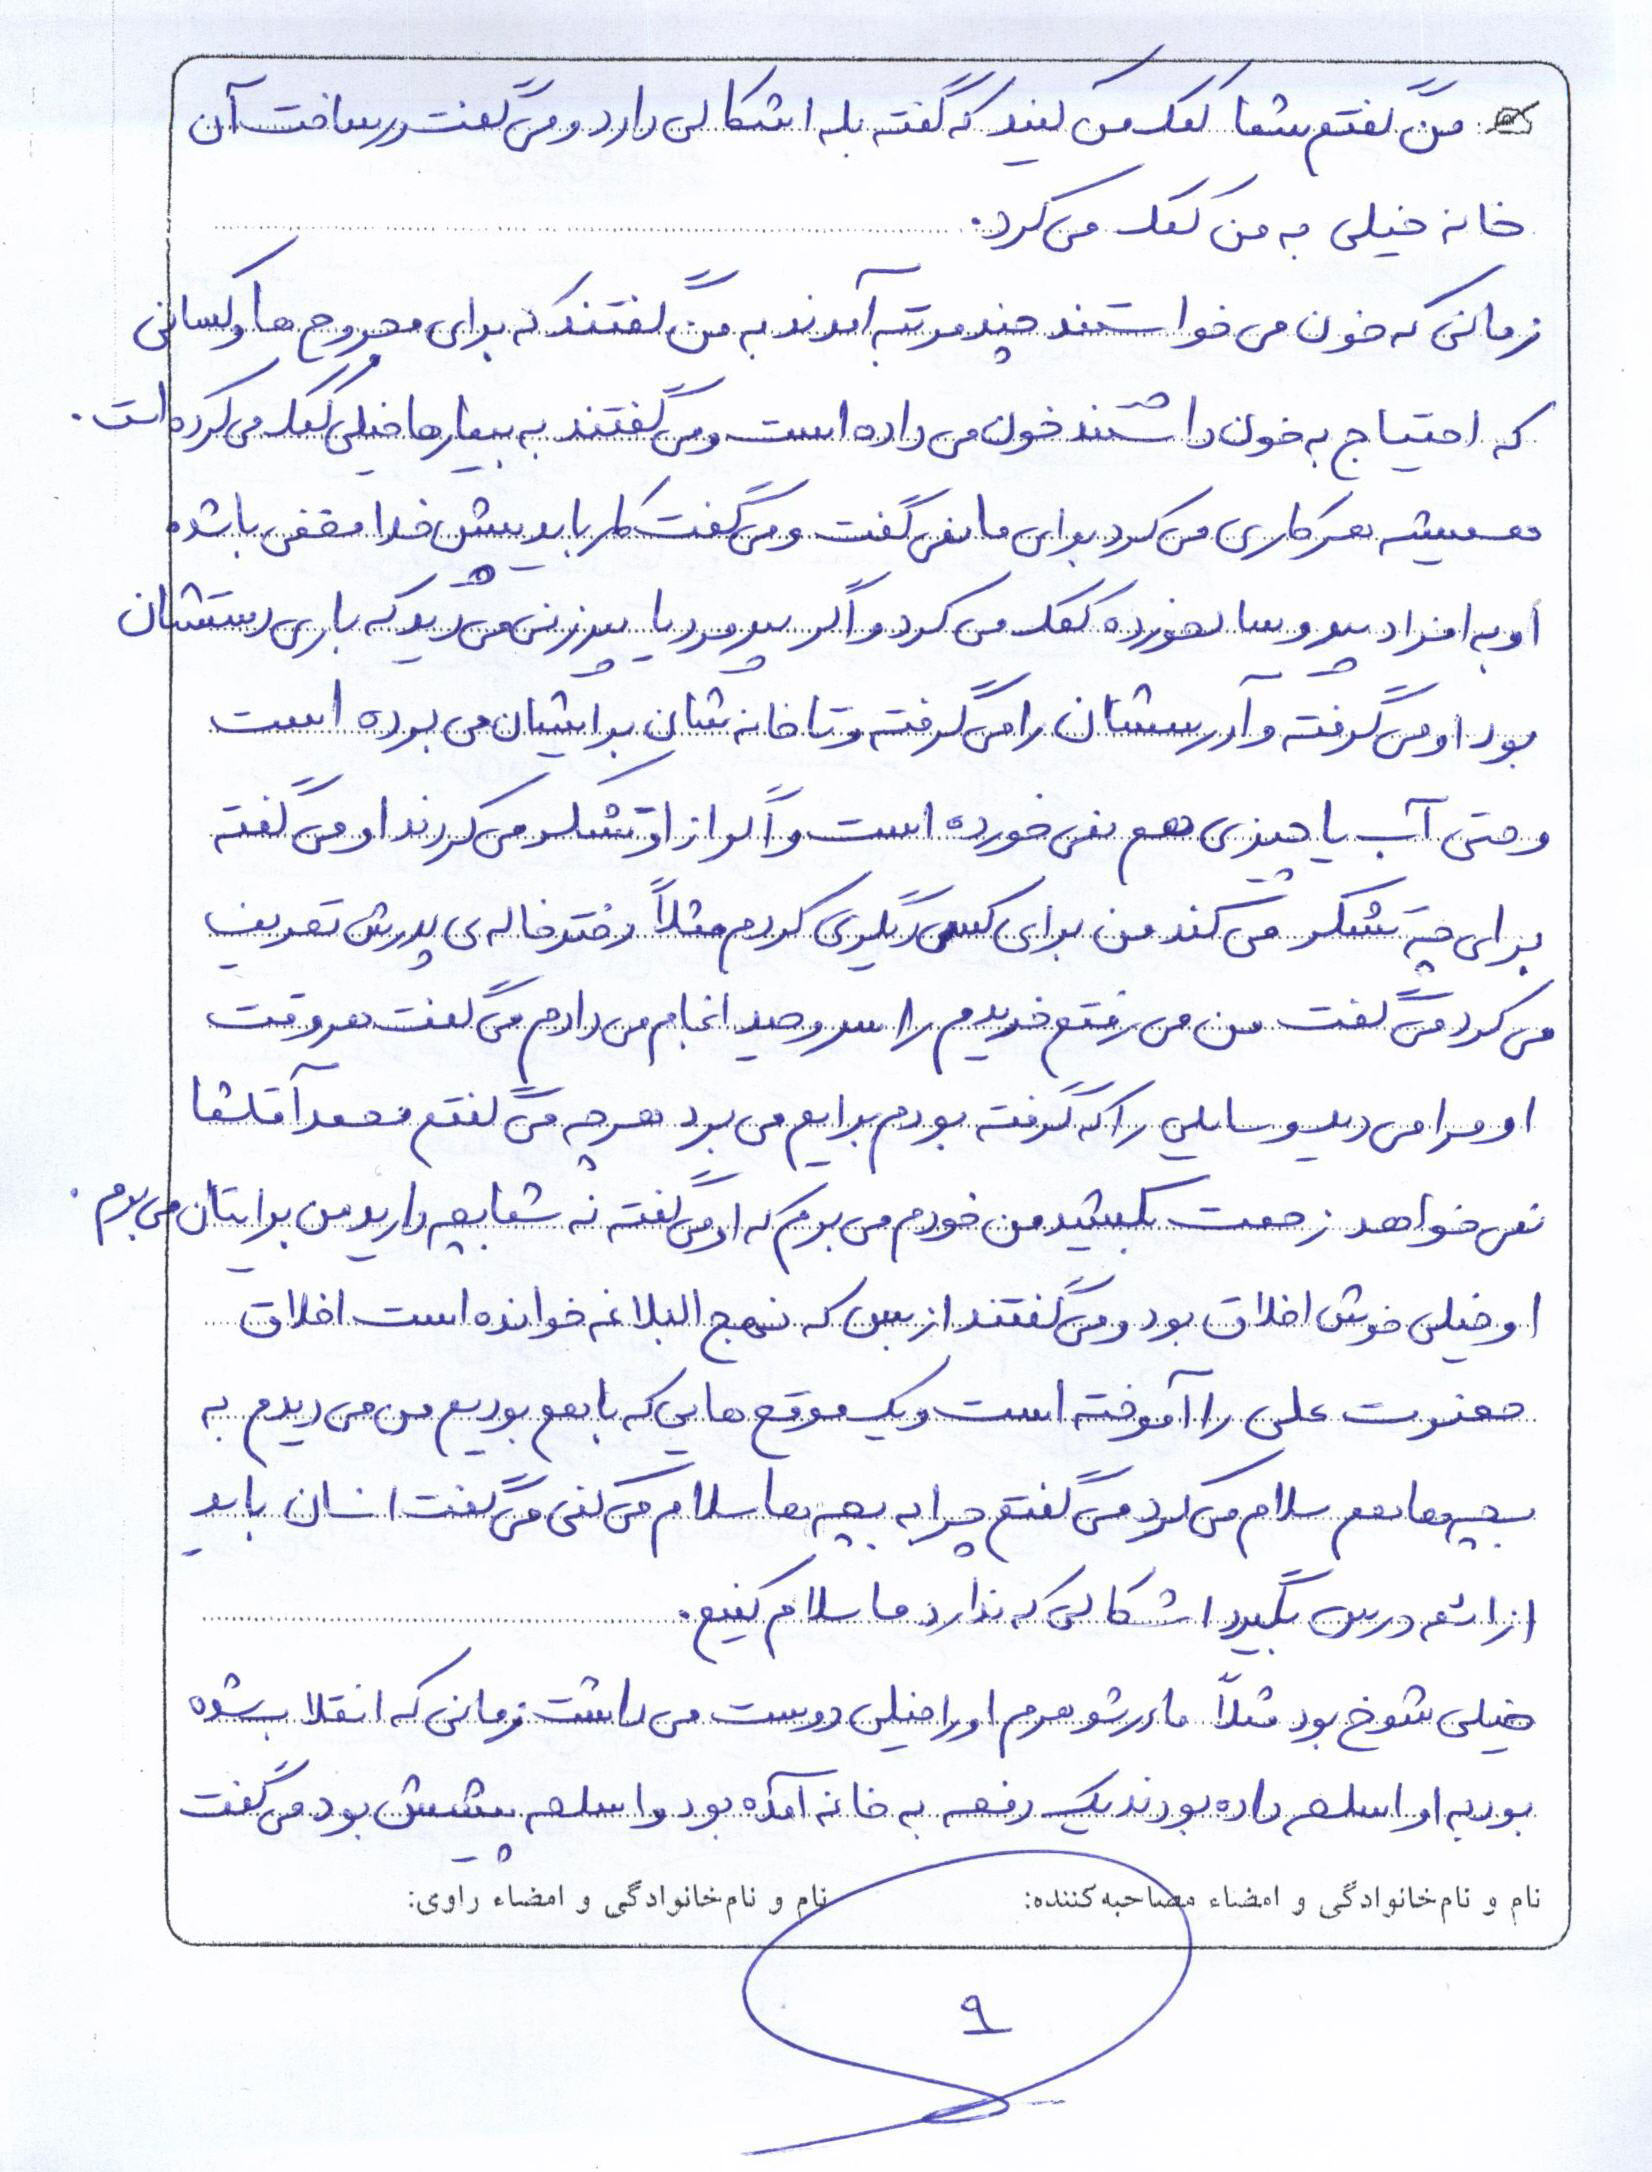 می گفتم شما کمک می کنید که گفته بله اشکالی دارد و می گفت در ساخت آن
خانه خیلی به من کمک می کرد.
زمانی که خون می خواستند چند مرتبه آمدند به من گفتند که برای مجروح ها و کسانی
که احتیاج به خون داشتند خون می داده است و می گفتند به بیمارها خیلی کمک می کرده است.
همیشه هر کاری می کرد برای ما نمی گفت و می گفت کار باید پیش خدا مخفی باشد
او به افراد پیر و سالخورده کمک می کرد و اگر پیرمرد یا پیرزنی می دید که باری دستشان
بود او می گرفته و آدرسشان را می گرفته و تا خانه شان برایشان می برده است
و حتی آب یا چیزی هم نمی خورده است و اگر از او تشکر می کردند او می گفته
برای چه تشکر می کند من برای کس دیگری کردم مثلاً دخترخاله ی پدرش تعریف
می کرد می گفت من می رفتم خریدم را سر وحید انجام می دادم می گفت هر وقت
او مرا می دید وسایلی را که گرفته بودم برایم می برد هر چه می گفتم محمد آقا شما
نمی خواهد زحمت بکشید من خودم می برم که او می گفته نه شما بچه دارید من برایتان می برم.
او خیلی خوش اخلاق بود و می گفتند از بس که نهج البلاغه خوانده است اخلاق
حضرت علی را آموخته است و یک موقع هایی که با هم بودیم من می دیدم به
بچه ها هم سلام می کرد می گفتم چرا به بچه ها سلام می کنی می گفت انسان باید
از ائمه درس بگیرد اشکالی که ندارد ما سلام کنیم.
خیلی شوخ بود مثلاً مادرشوهرم او را خیلی دوست می داشت زمانی که انقلاب شده
بود به او اسلحه داده بودند یک دفعه به خانه آمده بود و اسلحه پیشش بود می گفت
نام و نام خانوادگی و امضاء مصاحبه کننده: نام و نام خانوادگی و امضاء راوی:
۹